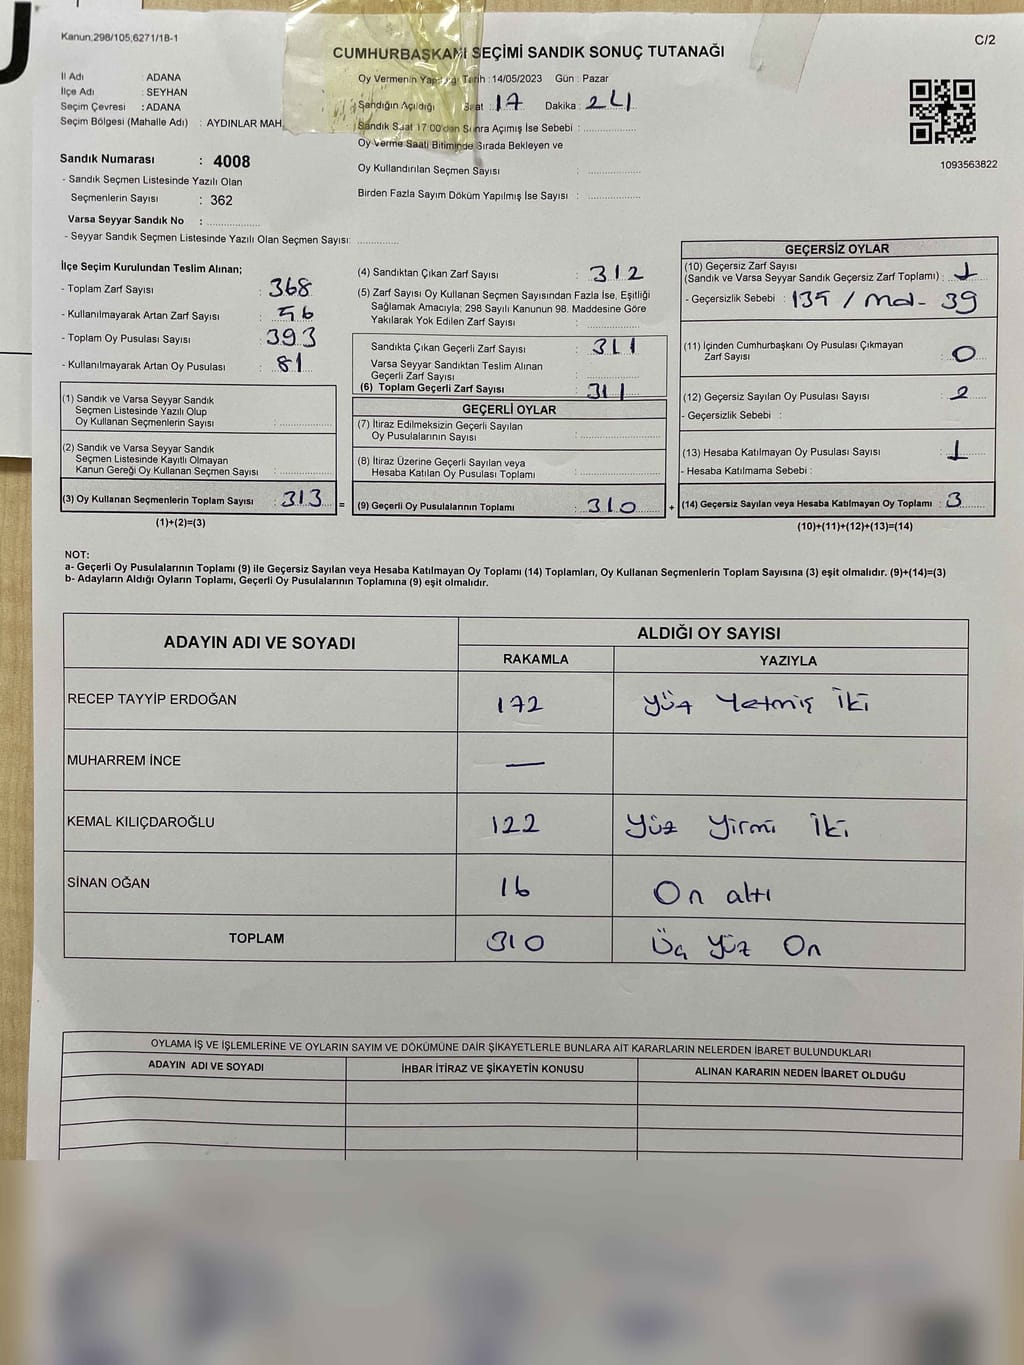 Kanun,298/105,6271/18-1
C/2
CUMHURBAŞKANI SEÇİMİ SANDIK SONUÇ TUTANAĞI
İl Adı : ADANA
İlçe Adı : SEYHAN
Seçim Çevresi : ADANA
Seçim Bölgesi (Mahalle Adı) : AYDINLAR MAH.
Sandık Numarası : 4008
- Sandık Seçmen Listesinde Yazılı Olan
Seçmenlerin Sayısı : 362
Varsa Seyyar Sandık No : ....................
- Seyyar Sandık Seçmen Listesinde Yazılı Olan Seçmen Sayısı: ..............
Oy Vermenin Tarih :14/05/2023 Gün : Pazar
Sandığın Açıldığı Saat :17 Dakika :24
Sandık Saat 17:00'dan Sonra Açımış İse Sebebi : ....................
Oy Verme Saati Bitiminde Sırada Bekleyen ve
Oy Kullandırılan Seçmen Sayısı : ....................
Birden Fazla Sayım Döküm Yapılmış İse Sayısı : ....................
1093563822
İlçe Seçim Kurulundan Teslim Alınan;
- Toplam Zarf Sayısı : 368
- Kullanılmayarak Artan Zarf Sayısı : 56
- Toplam Oy Pusulası Sayısı : 393
- Kullanılmayarak Artan Oy Pusulası : 81
(1) Sandık ve Varsa Seyyar Sandık
Seçmen Listesinde Yazılı Olup
Oy Kullanan Seçmenlerin Sayısı : ....................
(2) Sandık ve Varsa Seyyar Sandık
Seçmen Listesinde Kayıtlı Olmayan
Kanun Gereği Oy Kullanan Seçmen Sayısı : ....................
(3) Oy Kullanan Seçmenlerin Toplam Sayısı : 313 =
(1)+(2)=(3)
(4) Sandıktan Çıkan Zarf Sayısı : 312
(5) Zarf Sayısı Oy Kullanan Seçmen Sayısından Fazla İse, Eşitliği
Sağlamak Amacıyla; 298 Sayılı Kanunun 98. Maddesine Göre
Yakılarak Yok Edilen Zarf Sayısı : ....................
Sandıkta Çıkan Geçerli Zarf Sayısı : 311
Varsa Seyyar Sandıktan Teslim Alınan
Geçerli Zarf Sayısı : ....................
(6) Toplam Geçerli Zarf Sayısı : 311
GEÇERLİ OYLAR
(7) İtiraz Edilmeksizin Geçerli Sayılan
Oy Pusulalarının Sayısı : ....................
(8) İtiraz Üzerine Geçerli Sayılan veya
Hesaba Katılan Oy Pusulası Toplamı : ....................
(9) Geçerli Oy Pusulalarının Toplamı : 310 +
GEÇERSİZ OYLAR
(10) Geçersiz Zarf Sayısı
(Sandık ve Varsa Seyyar Sandık Geçersiz Zarf Toplamı) : 1
- Geçersizlik Sebebi : 135 / Md- 39
(11) İçinden Cumhurbaşkanı Oy Pusulası Çıkmayan
Zarf Sayısı : 0
(12) Geçersiz Sayılan Oy Pusulası Sayısı : 2
- Geçersizlik Sebebi :
(13) Hesaba Katılmayan Oy Pusulası Sayısı : 1
- Hesaba Katılmama Sebebi :
(14) Geçersiz Sayılan veya Hesaba Katılmayan Oy Toplamı : 3
(10)+(11)+(12)+(13)=(14)
NOT:
a- Geçerli Oy Pusulalarının Toplamı (9) ile Geçersiz Sayılan veya Hesaba Katılmayan Oy Toplamı (14) Toplamları, Oy Kullanan Seçmenlerin Toplam Sayısına (3) eşit olmalıdır. (9)+(14)=(3)
b- Adayların Aldığı Oyların Toplamı, Geçerli Oy Pusulalarının Toplamına (9) eşit olmalıdır.
ADAYIN ADI VE SOYADI
ALDIĞI OY SAYISI
RAKAMLA YAZIYLA
RECEP TAYYİP ERDOĞAN 172 Yüz Yetmiş İki
MUHARREM İNCE —
KEMAL KILIÇDAROĞLU 122 Yüz Yirmi İki
SİNAN OĞAN 16 On altı
TOPLAM 310 Üç Yüz On
OYLAMA İŞ VE İŞLEMLERİNE VE OYLARIN SAYIM VE DÖKÜMÜNE DAİR ŞİKAYETLERLE BUNLARA AİT KARARLARIN NELERDEN İBARET BULUNDUKLARI
ADAYIN ADI VE SOYADI İHBAR İTİRAZ VE ŞİKAYETİN KONUSU ALINAN KARARIN NEDEN İBARET OLDUĞU